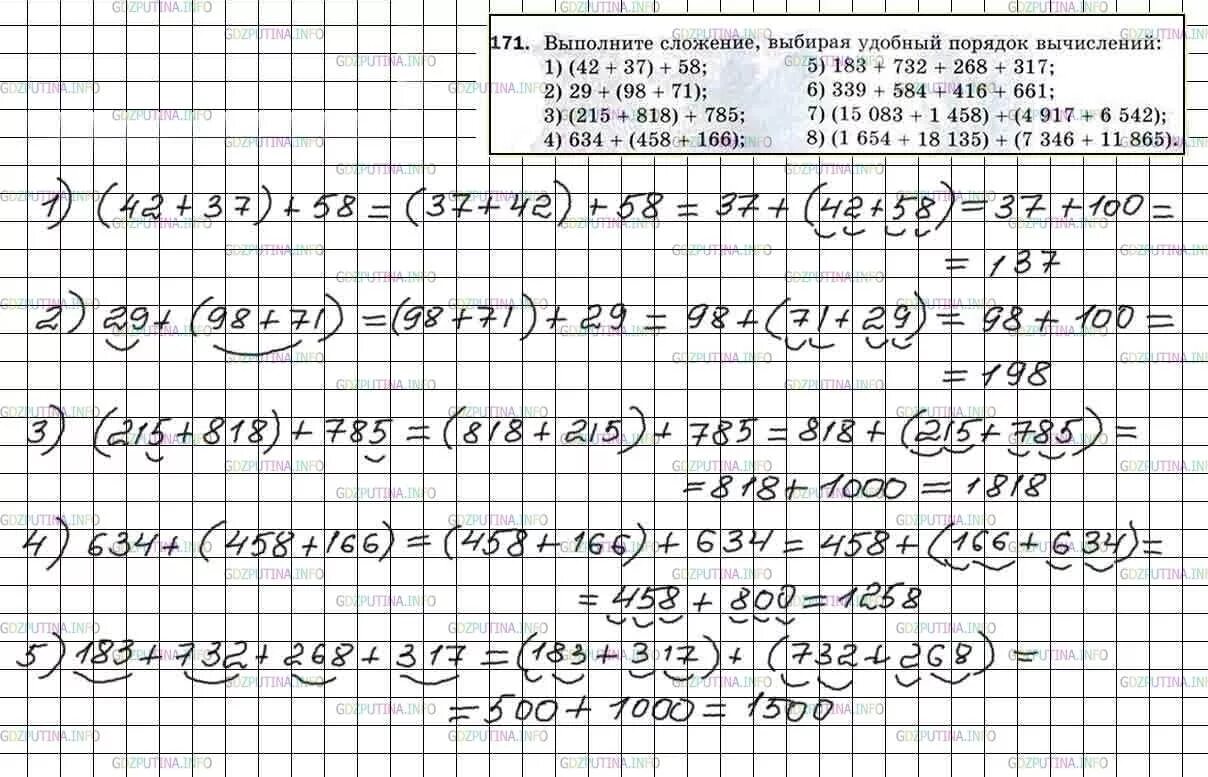 171. Выполните сложение, выбирая удобный порядок вычислений:
1) (42 + 37) + 58;
2) 29 + (98 + 71);
3) (215 + 818) + 785;
4) 634 + (458 + 166);
5) 183 + 732 + 268 + 317;
6) 339 + 584 + 416 + 661;
7) (15 083 + 1 458) + (4 917 + 6 542);
8) (1 654 + 18 135) + (7 346 + 11 865).
1) (42+37)+58=(37+42)+58=37+(42+58)=37+100=
=137
2) 29+(98+71)=(98+71)+29=98+(71+29)=98+100=
=198
3) (215+818)+785=(818+215)+785=818+(215+785)=
=818+1000=1818
4) 634+(458+166)=(458+166)+634=458+(166+634)=
=458+800=1258
5) 183+732+268+317=(183+317)+(732+268)=
=500+1000=1500
GDZPUTINA.INFO